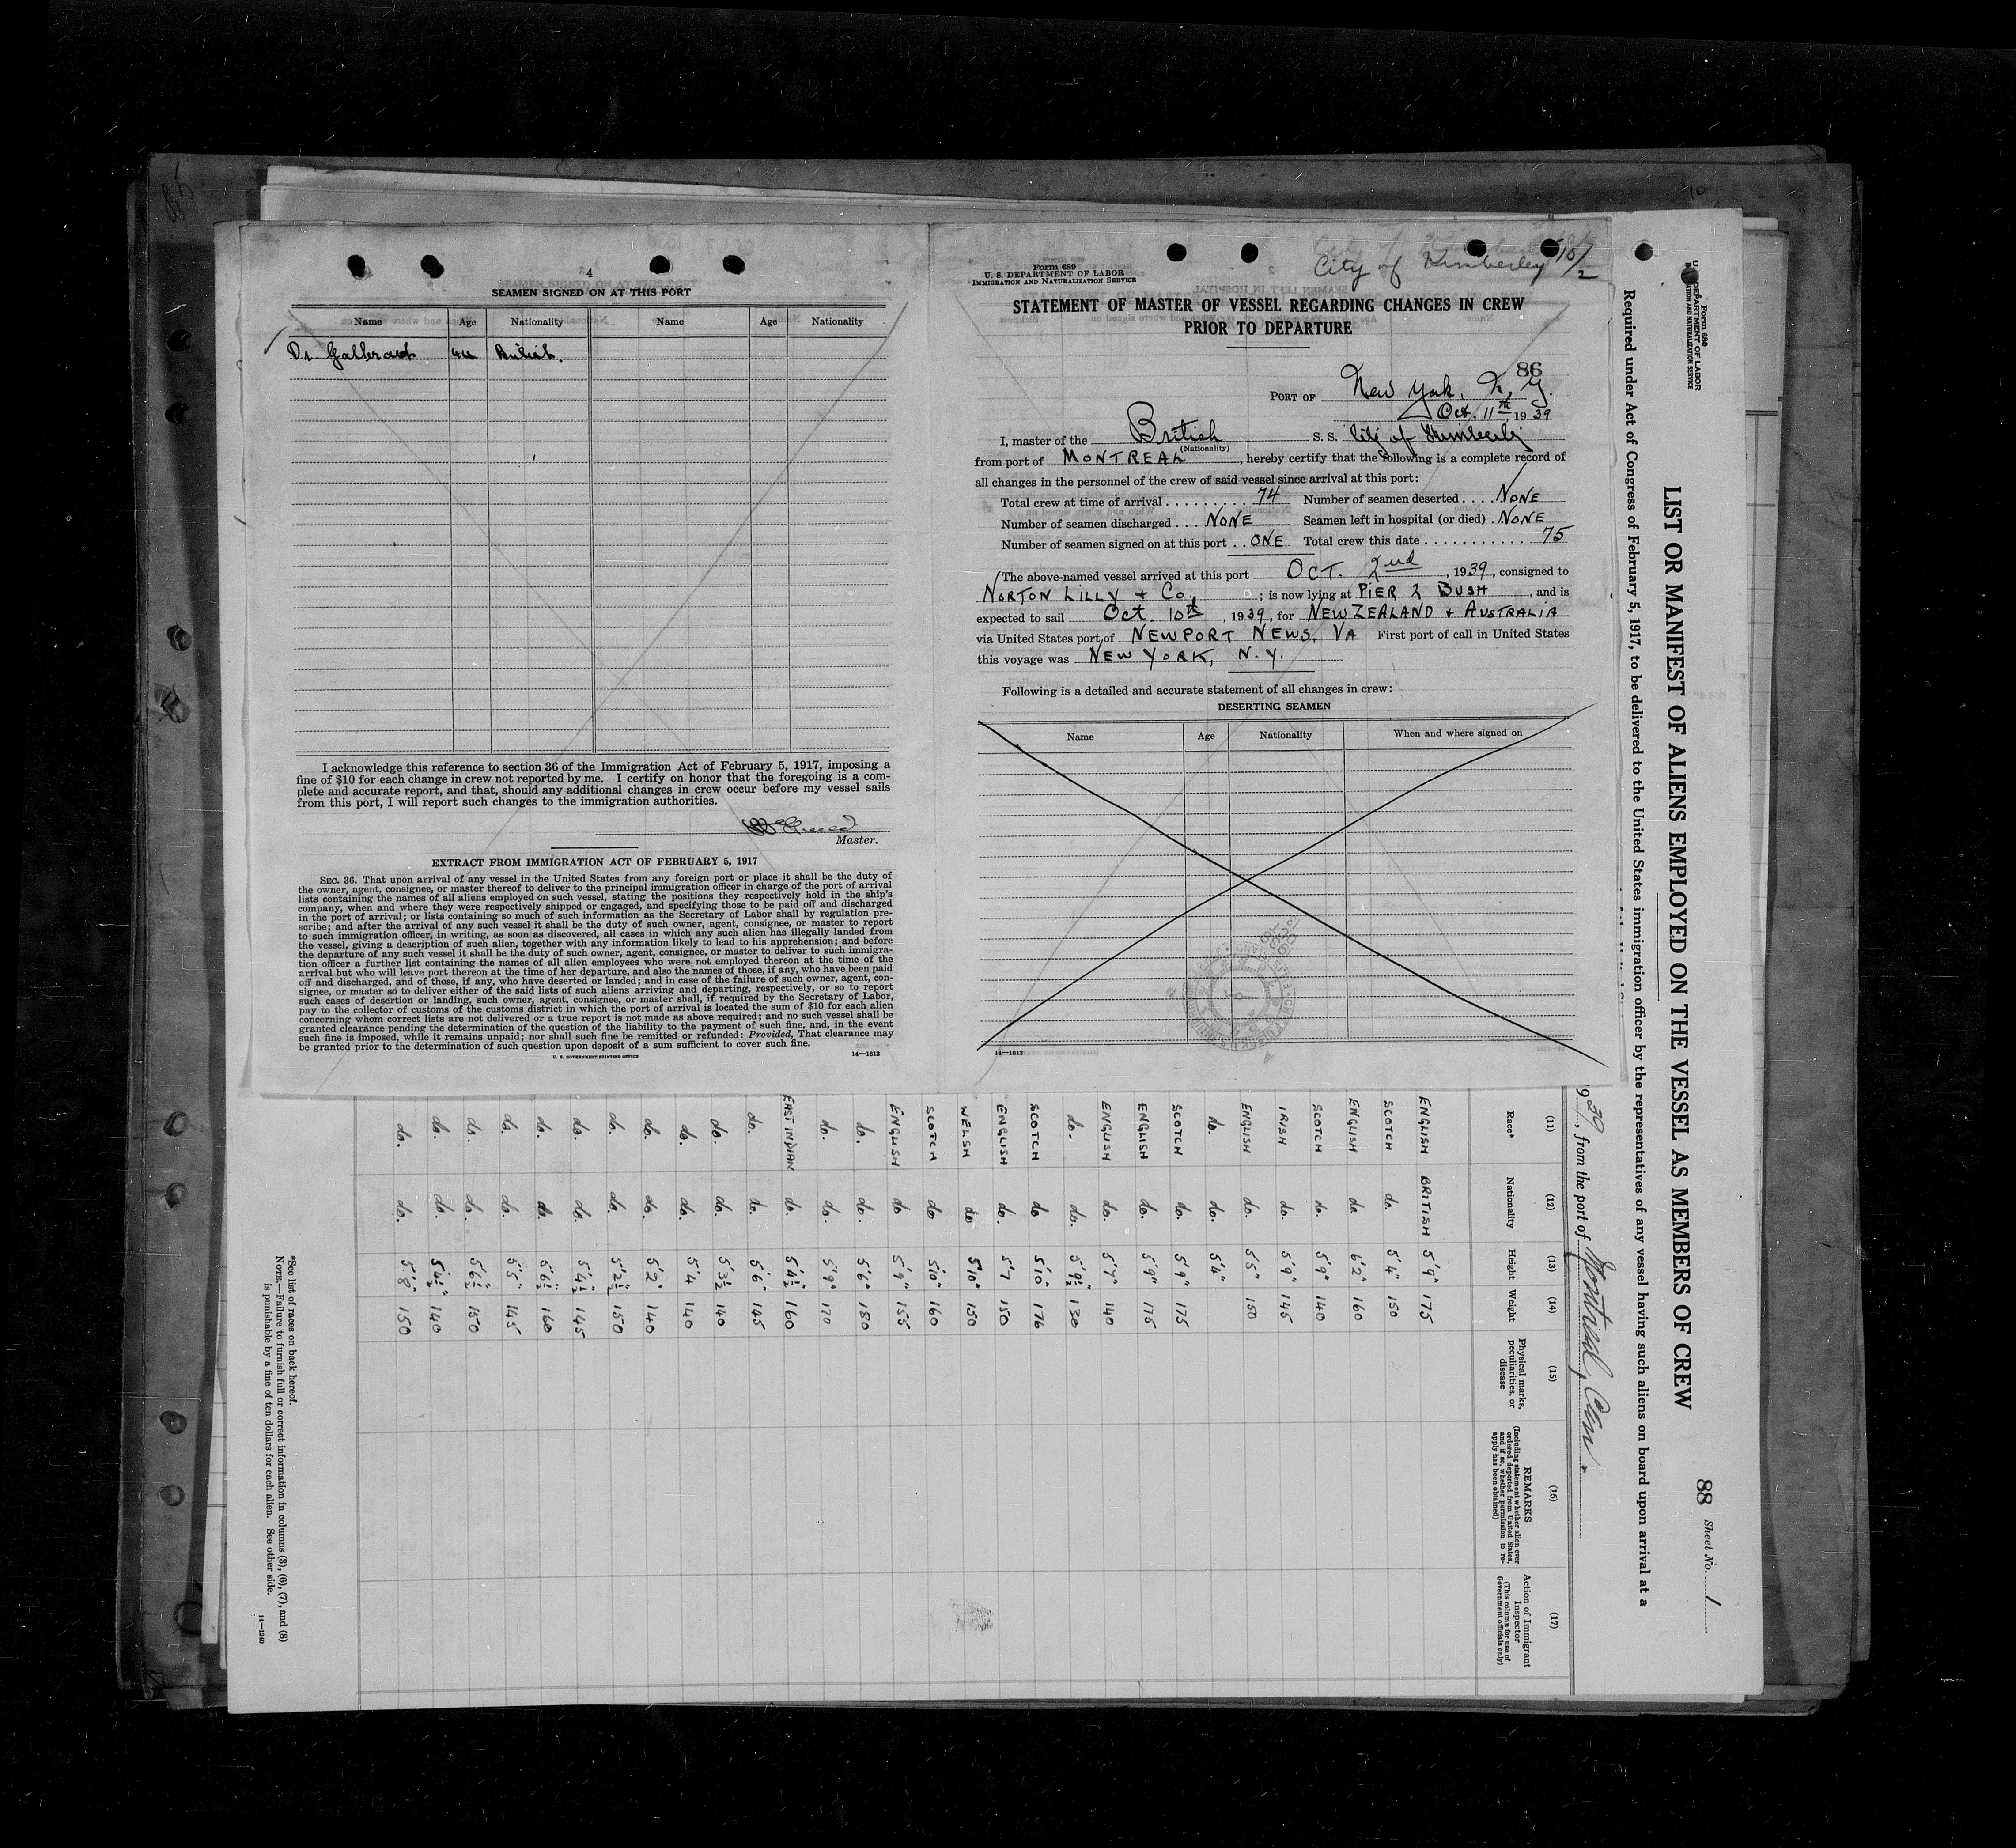 4
SEAMEN SIGNED ON AT THIS PORT
Name Age Nationality Name Age Nationality
Dr 44 British.
I acknowledge this reference to section 36 of the Immigration Act of February 5, 1917, imposing a
fine of $10 for each change in crew not reported by me. I certify on honor that the foregoing is a com-
plete and accurate report, and that, should any additional changes in crew occur before my vessel sails
from this port, I will report such changes to the immigration authorities.
Master.
EXTRACT FROM IMMIGRATION ACT OF FEBRUARY 5, 1917
SEC. 36. That upon arrival of any vessel in the United States from any foreign port or place it shall be the duty of
the owner, agent, consignee, or master thereof to deliver to the principal immigration officer in charge of the port of arrival
lists containing the names of all aliens employed on such vessel, stating the positions they respectively hold in the ship's
company, when and where they were respectively shipped or engaged, and specifying those to be paid off and discharged
in the port of arrival; or lists containing so much of such information as the Secretary of Labor shall by regulation pre-
scribe; and after the arrival of any such vessel it shall be the duty of such owner, agent, consignee, or master to report
to such immigration officer, in writing, as soon as discovered, all cases in which any such alien has illegally landed from
the vessel, giving a description of such alien, together with any information likely to lead to his apprehension; and before
the departure of any such vessel it shall be the duty of such owner, agent, consignee, or master to deliver to such immigra-
tion officer a further list containing the names of all alien employees who were not employed thereon at the time of the
arrival but who will leave port thereon at the time of her departure, and also the names of those, if any, who have been paid
off and discharged, and of those, if any, who have deserted or landed; and in case of the failure of such owner, agent, con-
signee, or master so to deliver either of the said lists of such aliens arriving and departing, respectively, or so to report
such cases of desertion or landing, such owner, agent, consignee, or master shall, if required by the Secretary of Labor,
pay to the collector of customs of the customs district in which the port of arrival is located the sum of $10 for each alien
concerning whom correct lists are not delivered or a true report is not made as above required; and no such vessel shall be
granted clearance pending the determination of the question of the liability to the payment of such fine, and, in the event
such fine is imposed, while it remains unpaid; nor shall such fine be remitted or refunded: Provided, That clearance may
be granted prior to the determination of such question upon deposit of a sum sufficient to cover such fine.
U. S. GOVERNMENT PRINTING OFFICE 14—1613
Form 689
U. S. DEPARTMENT OF LABOR
IMMIGRATION AND NATURALIZATION SERVICE
City of Kimberley 10/2
STATEMENT OF MASTER OF VESSEL REGARDING CHANGES IN CREW
PRIOR TO DEPARTURE
86
PORT OF New York, N.Y.
Oct. 11th 1939
I, master of the British S. S. City of Kimberley
(Nationality)
from port of MONTREAL, hereby certify that the following is a complete record of
all changes in the personnel of the crew of said vessel since arrival at this port:
Total crew at time of arrival . . . . . . . . . . 74 Number of seamen deserted . . . . NONE
Number of seamen discharged . . . NONE Seamen left in hospital (or died) . NONE
Number of seamen signed on at this port . . ONE Total crew this date . . . . . . . . . . . . 75
The above-named vessel arrived at this port OCT. 2nd, 1939, consigned to
NORTON LILLY & Co. ; is now lying at PIER 2 BUSH, and is
expected to sail Oct. 10th, 1939, for NEW ZEALAND & AUSTRALIA
via United States port of NEWPORT NEWS, VA First port of call in United States
this voyage was NEW YORK, N.Y.
Following is a detailed and accurate statement of all changes in crew:
DESERTING SEAMEN
Name Age Nationality When and where signed on
14—1613
Form 680
U. S. DEPARTMENT OF LABOR
IMMIGRATION AND NATURALIZATION SERVICE
88 Sheet No. 1
LIST OR MANIFEST OF ALIENS EMPLOYED ON THE VESSEL AS MEMBERS OF CREW
Required under Act of Congress of February 5, 1917, to be delivered to the United States immigration officer by the representatives of any vessel having such aliens on board upon arrival at a
939, from the port of Montreal, Can.
(11) (12) (13) (14) (15) (16) (17)
Race* Nationality Height Weight Physical marks, peculiarities, or disease REMARKS (Including statement whether alien ever ordered deported from United States, and if so, whether permission to re-apply has been obtained) Action of Immigrant Inspector (This column for use of Government officials only)
ENGLISH BRITISH 5'9" 175
SCOTCH do. 5'4" 150
ENGLISH do. 6'2" 160
SCOTCH do. 5'9" 140
IRISH do. 5'9" 145
ENGLISH do. 5'5" 150
do. do. 5'4"
SCOTCH do. 5'9" 175
ENGLISH do. 5'9" 175
ENGLISH do. 5'7" 140
do. do. 5'9½" 130
SCOTCH do 5'10" 176
ENGLISH do. 5'7 150
WELSH do 5'10" 150
SCOTCH do 5'10" 160
ENGLISH do 5'9" 155
do. do. 5'6" 180
do. do. 5'9" 170
EAST INDIAN do. 5'4½" 160
do. do. 5'6" 145
do. do. 5'3½ 140
do. do. 5'4 140
do. do. 5'2" 140
do. do. 5'2½" 150
do. do. 5'4½ 145
do. do. 5'6½" 160
do. do. 5'5" 145
do. do. 5'6½" 150
do. do. 5'4½" 140
do. do. 5'8" 150
*See list of races on back hereof.
NOTE.—Failure to furnish full or correct information in columns (3), (6), (7), and (8)
is punishable by a fine of ten dollars for each alien. See other side.
14—1240
85